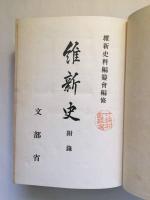 維新史料編纂會編修
維新史
附錄
文部省